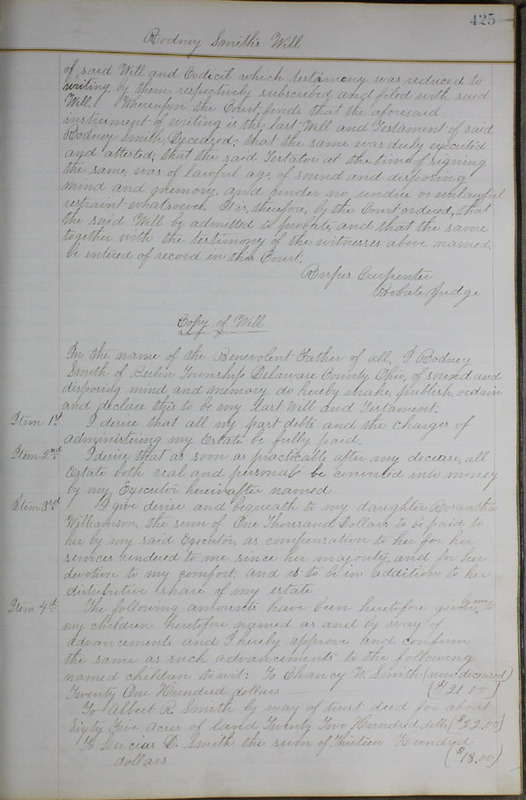 425
Rodney Smith's Will
of said Will and Codicil which testimony was reduced to
writing by them respectively subscribed and filed with said
Will. Whereupon the Court finds that the aforesaid
instrument of writing is the last Will and Testament of said
Rodney Smith, Deceased; that the same was duly executed
and attested; that the said Testator at the time of signing
the same, was of lawful age, of sound and disposing
mind and memory, and under no undue or unlawful
restraint whatsoever. It is, therefore, by the Court ordered, that
the said Will be admitted to probate, and that the same
together with the testimony of the witnesses above named
be entered of record in this Court.
Rufus Carpenter
Probate Judge
Copy of Will
In the name of the Benevolent Father of all, I Rodney
Smith of Berlin Township Delaware County Ohio, of sound and
disposing mind and memory, do hereby make, publish, ordain
and declare this to be my Last Will and Testament.
Item 1st I desire that all my past debts and the charges of
administering my Estate be fully paid.
Item 2nd I desire that as soon as practicable after my decease, all
Estate both real and personal be converted into money
by my Executor hereinafter named
Item 3rd I give devise and bequeath to my daughter
Williamson, the sum of One Thousand Dollars to be paid to
her by my said Executor, as compensation to her for her
services rendered to me since her majority and for her
devotion to my comfort, and is to be in addition to her
distributive share of my estate
Item 4th The following amounts have been heretofore given to
my children heretofore named as and by way of
advancements and I hereby approve and confirm
the same as such advancements to the following
named children to wit: To Chancy W. Smith (now deceased)
Twenty One Hundred dollars ($21.00)
To Albert R. Smith by way of trust deed for about
Sixty Five acres of land Twenty Two Hundred dolls ($22.00)
To Lucius D. Smith the sum of Thirteen Hundred
dollars ($13.00)